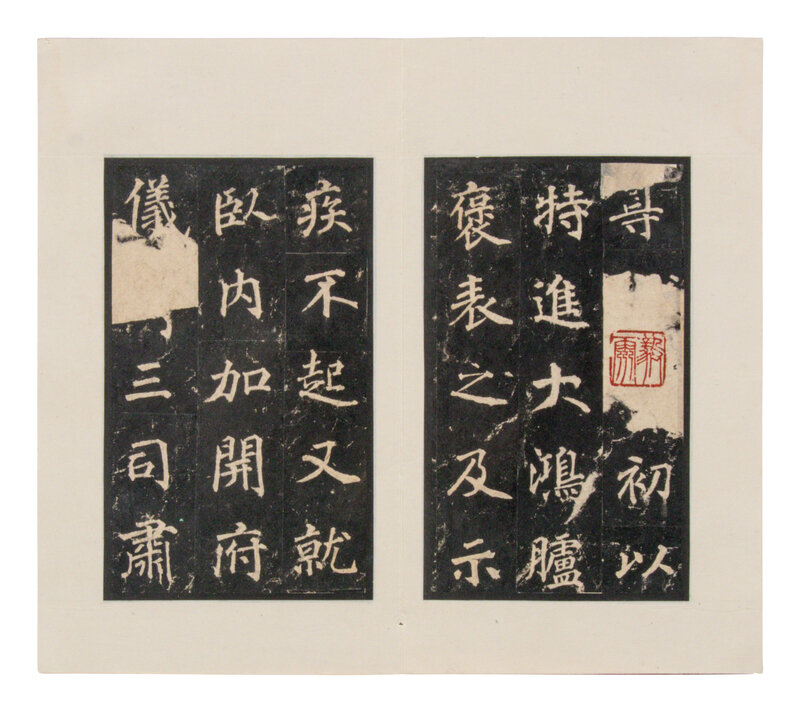 初以
特進大鴻臚
褒表之及示
疾不起又就
臥内加開府
儀三司肅